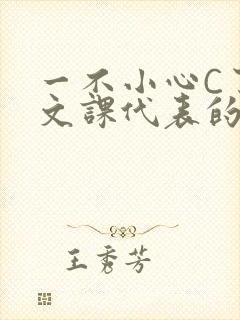 一不小心C
文課代表的
王秀芳